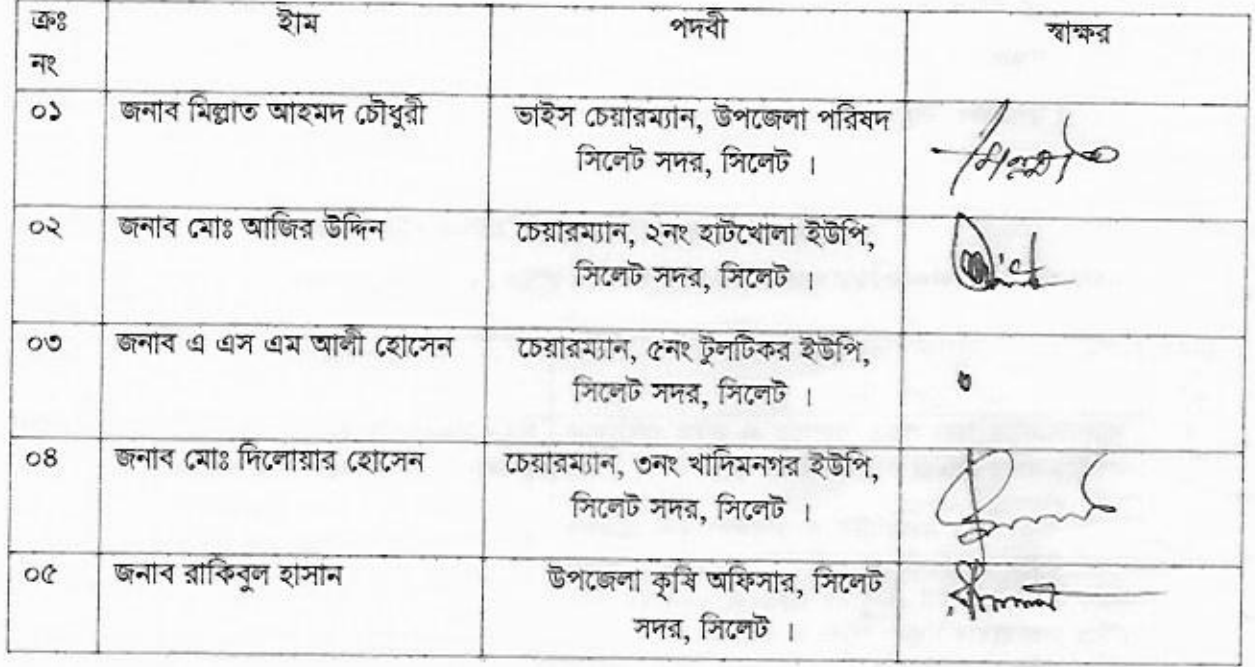 ক্রঃ নং ইাম পদবী স্বাক্ষর
০১ জনাব মিল্লাত আহমদ চৌধুরী ভাইস চেয়ারম্যান, উপজেলা পরিষদ
সিলেট সদর, সিলেট ।
০২ জনাব মোঃ আজির উদ্দিন চেয়ারম্যান, ২নং হাটখোলা ইউপি,
সিলেট সদর, সিলেট ।
০৩ জনাব এ এস এম আলী হোসেন চেয়ারম্যান, ৫নং টুলটিকর ইউপি,
সিলেট সদর, সিলেট ।
০৪ জনাব মোঃ দিলোয়ার হোসেন চেয়ারম্যান, ৩নং খাদিমনগর ইউপি,
সিলেট সদর, সিলেট ।
০৫ জনাব রাকিবুল হাসান উপজেলা কৃষি অফিসার, সিলেট
সদর, সিলেট ।